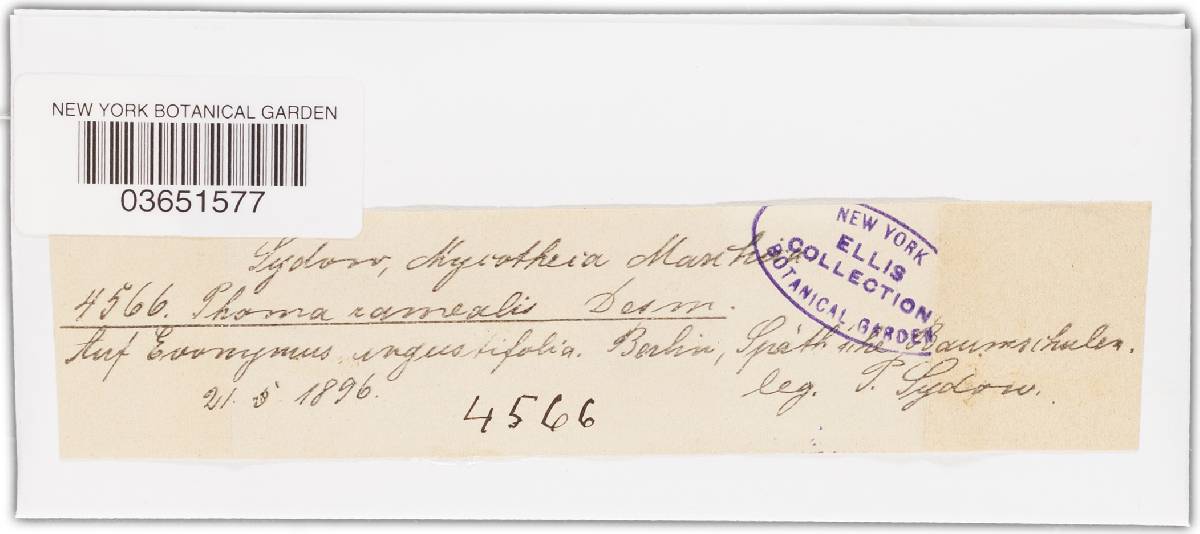 NEW YORK BOTANICAL GARDEN
03651577
NEW YORK
ELLIS
COLLECTION
BOTANICAL GARDEN
Sydow, Mycotheca Marchica
4566. Phoma ramealis Desm.
Auf Evonymus angustifolia. Berlin, Späth'sche Baumschulen.
21. 5 1896.
leg. P. Sydow.
4566